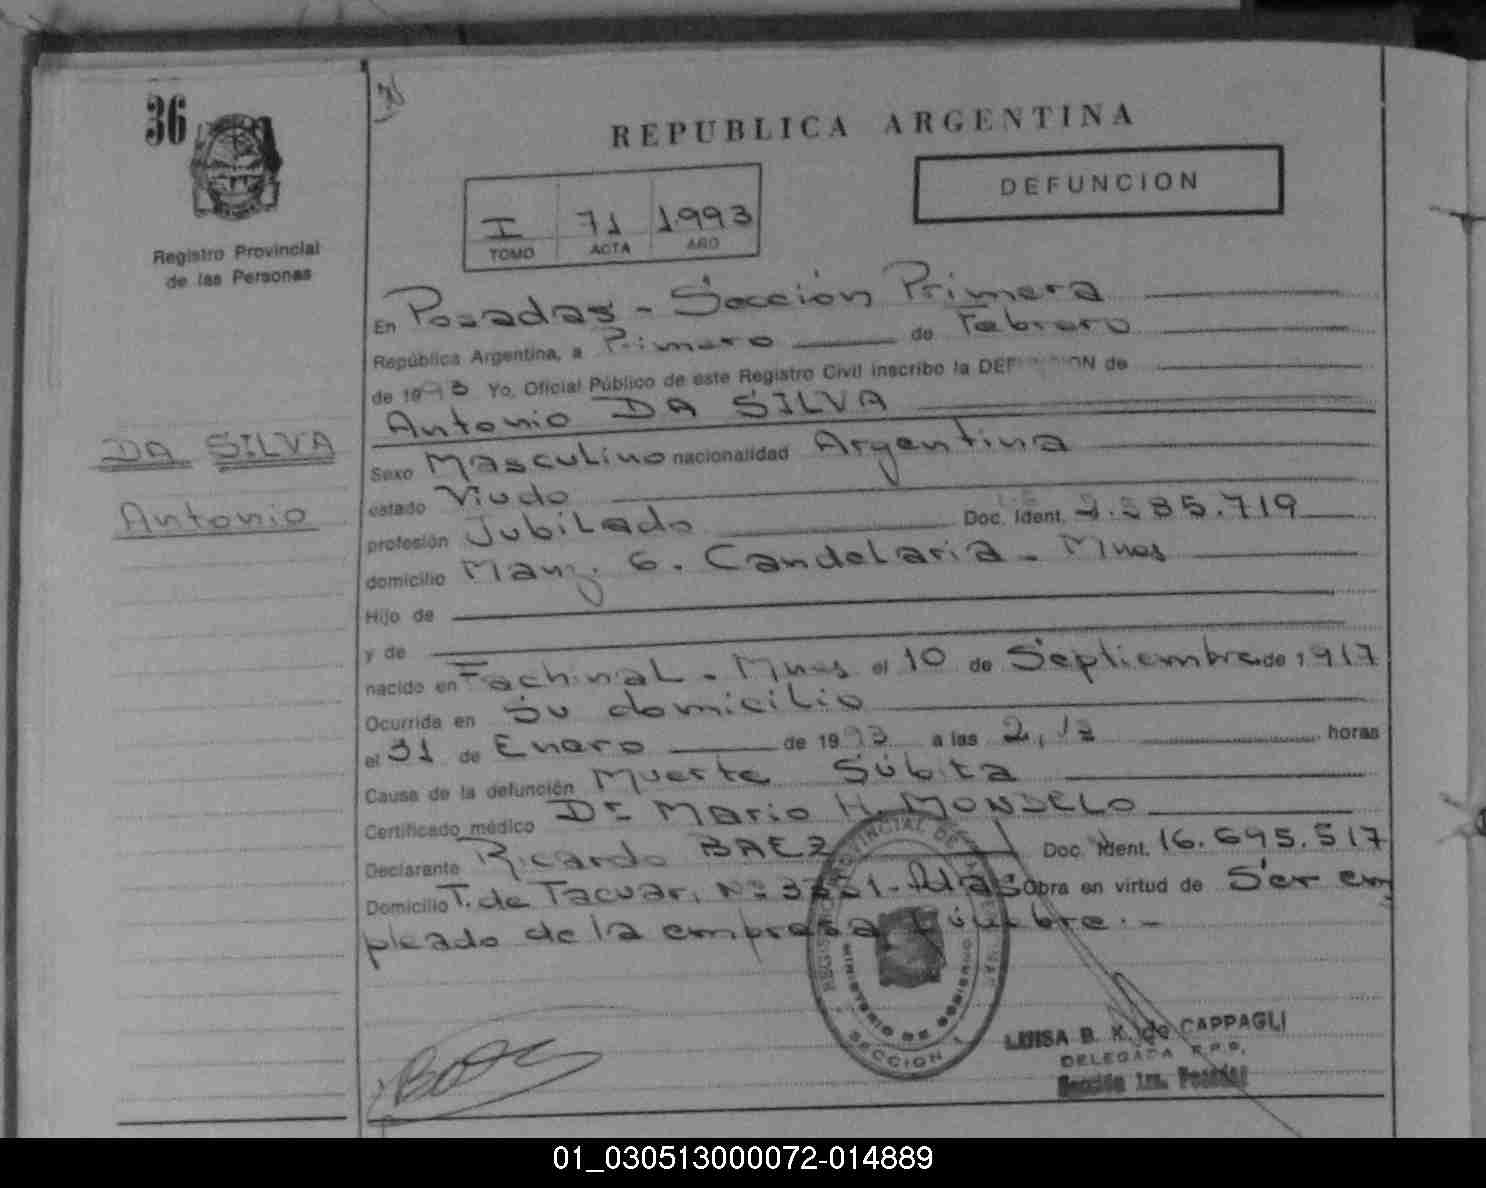 36
Registro Provincial
de las Personas
DA SILVA
Antonio
REPUBLICA ARGENTINA
DEFUNCION
I 71 1993
TOMO ACTA AÑO
En Posadas - Sección Primera
República Argentina, a Primero de Febrero
de 1993 Yo, Oficial Público de este Registro Civil inscribo la DEFUNCION de
Antonio DA SILVA
Sexo Masculino nacionalidad Argentina
estado Viudo
profesión Jubilado Doc. Ident. 85.719
domicilio Manz. 6. Candelaria - Mnes
Hijo de
y de
nacido en Fachinal - Mnes el 10 de Septiembre de 1917
Ocurrida en Su domicilio
el 31 de Enero de 1993 a las horas
Causa de la defunción Muerte Súbita
Certificado médico Dr Mario H. MONDELO
Declarante Ricardo BAEZ Doc. Ident. 16.695.517
Domicilio T. de Tacuari Nº Pdas Obra en virtud de Ser em
pleado de la empresa fúnebre.-
REGISTRO PROVINCIAL DE LAS PERSONAS
MINISTERIO DE GOBIERNO
SECCION 1
LUISA B. K. de CAPPAGLI
DELEGADA R.P.P.
Sección 1ra. Posadas
01_030513000072-014889